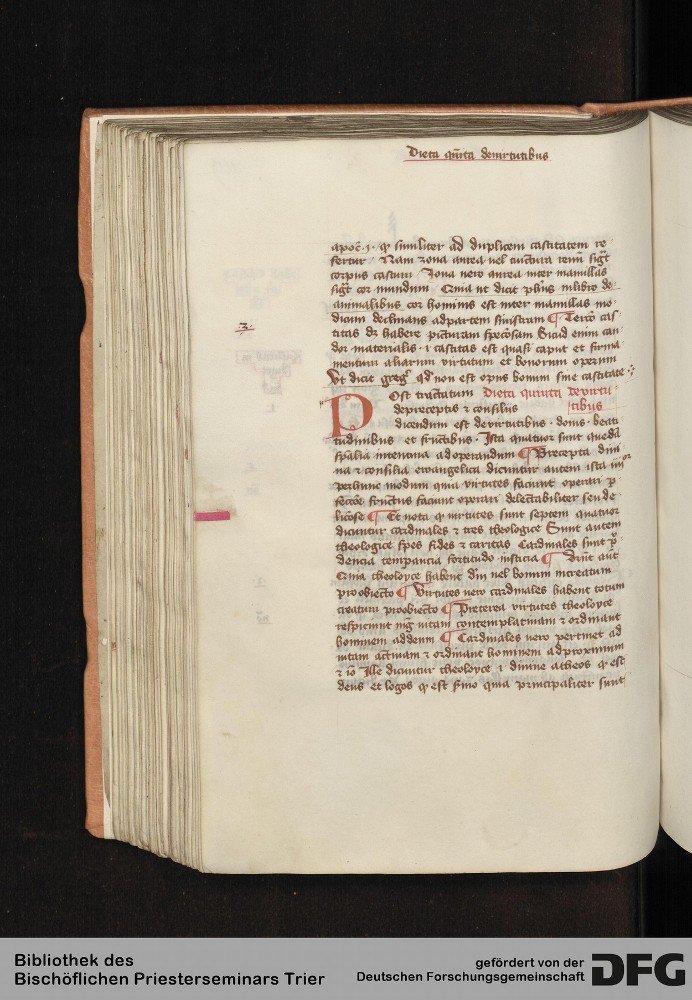 Dieta qũita de virtutibus
apoč · 1 · ꝙ similiter ad duplicem castitatem re
fertur / Nam zona aurea vel cinctura renū sigt̃
corpus castum Zona vero aurea inter mamillas
sigt̃ cor mundum Quia ut dicit ph̃us in libro de
animalibus cor hominis est inter mamillas mo
dicum declinans ad partem sinistram ¶ Tercō cas
titas dʒ habere picturam speciosam Sicud enim can
dor materialis · i castitas est quasi caput et firma
mentum aliarum virtutum et bonorum operum
Vt dicit gregꝰ qd' non est opus bonum sine castitate
2
Post tractatum Dieta quinta de virtu
de preceptis ⁊ consiliis tibus
dicendum est de virtutibus · donis · beati
tudinibus et fructibus · Ista quatuor sunt quedã
sp̃alia intentiua ad operandum ¶ Precepta diui
na ⁊ consilia ewangelica dicuntur autem ista iiijᵒʳ
per hunc modum quia virtutes faciunt operari ꝑ
fecte fructus faciunt operari delectabiliter seu de
liciose ¶ Et nota ꝙ virtutes sunt septem quatuor
dicuntur cardinales ⁊ tres theologice Sunt autem
theologice spes fides ⁊ caritas Cardinales sunt p̃
dencia temperancia fortitudo iusticia ¶ Dr̃nt aũt
Quia theoloyce habent dm̃ vel bonum increatum
pro obiecto ¶ Virtutes vero cardinales habent bonum
creatum pro obiecto ¶ Preterea virtutes theoloyce
respiciunt mg̃ vitam contemplatiuam ⁊ ordinant
hominem ad deum ¶ Cardinales vero pertinet ad
vitam actiuam ⁊ ordinant hominem ad proximum
⁊ iõ Ille dicuntur theoloyce i diuine a theos ꝙ est
deus et logos ꝙ est s̃mo quia principaliter sunt
Bibliothek des
Bischöflichen Priesterseminars Trier
gefördert von der
Deutschen Forschungsgemeinschaft
DFG